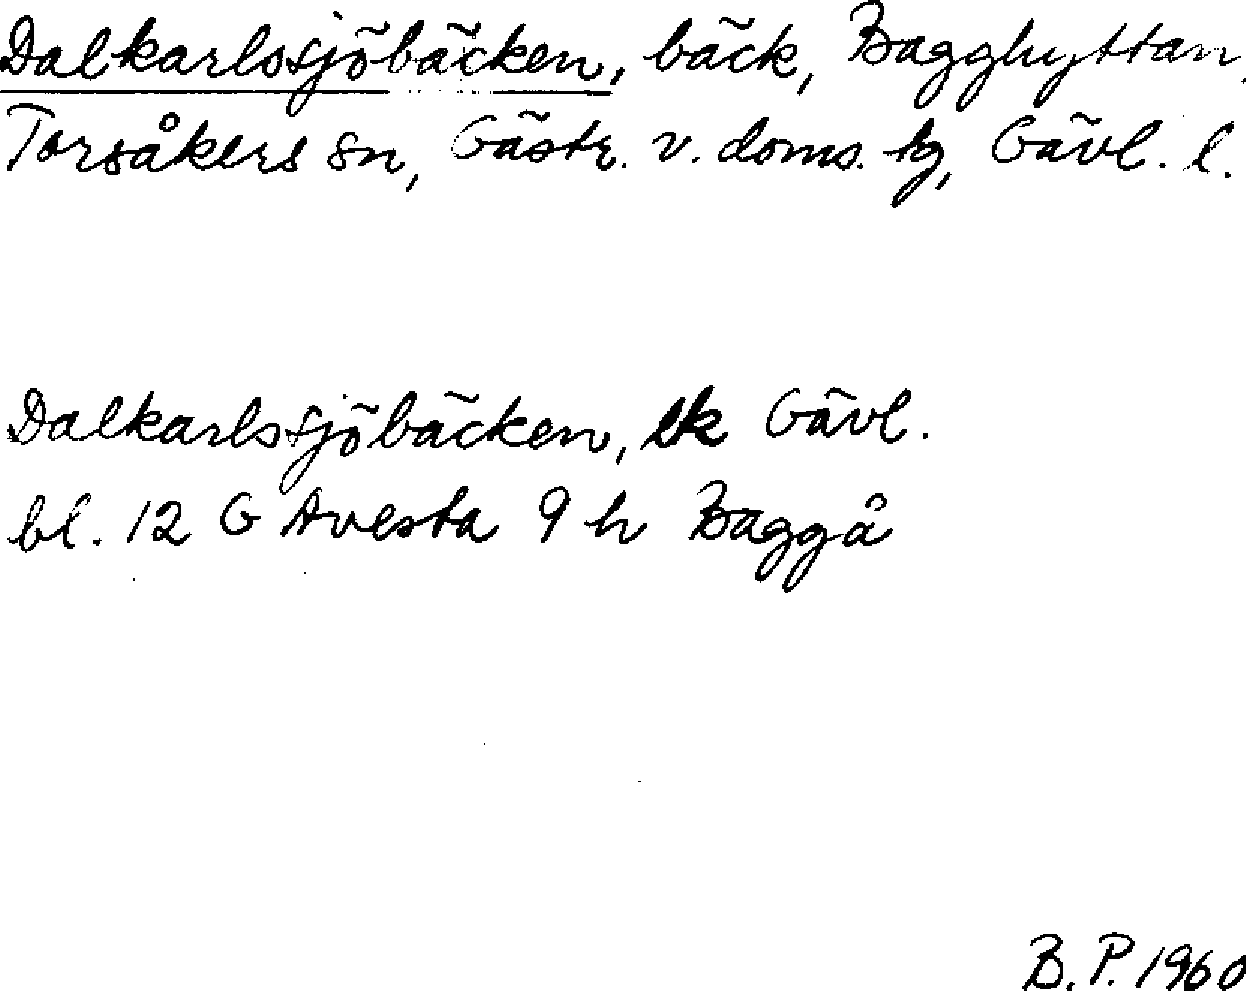 Dalkarlssjöbäcken, bäck, Bagghyttan,
Torsåkers sn, Gästr. v. doms. tg, Gävl. l.
Dalkarlssjöbäcken, ek Gävl.
bl. 12 G Avesta 9 h Baggå
B. P. 1960